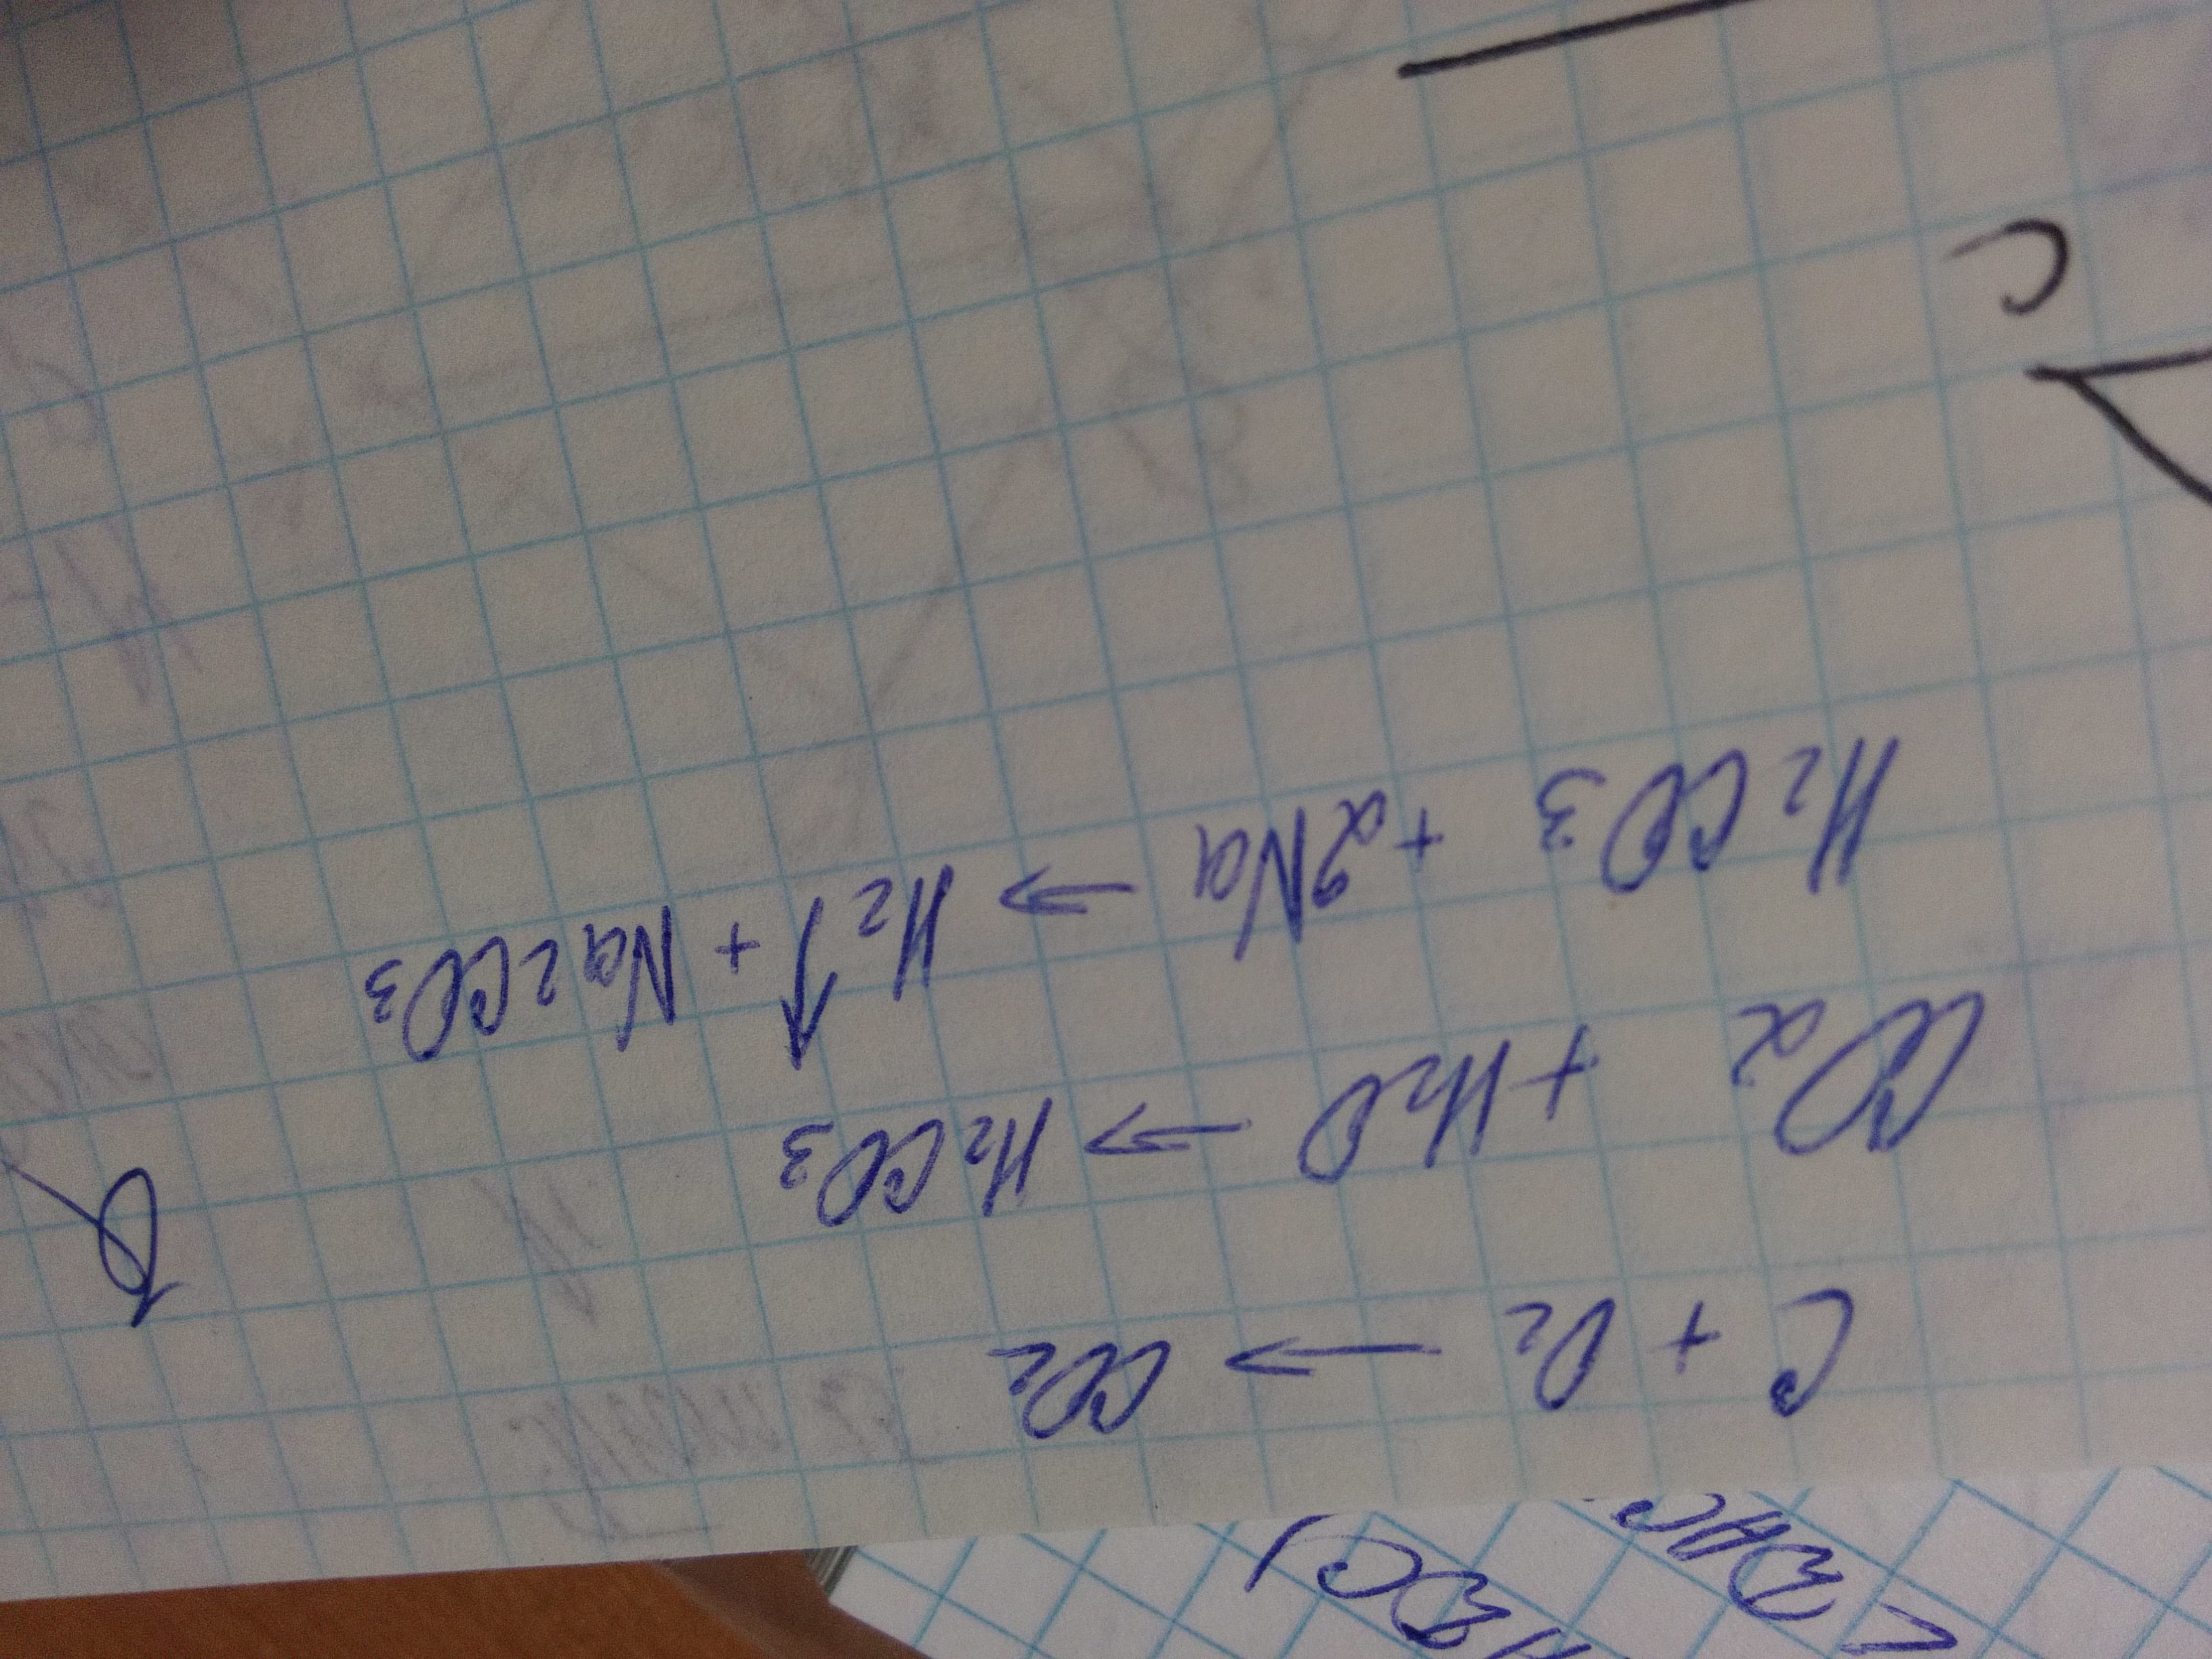 ∠ВАС
АВС)
C + O₂ → CO₂
CO₂ + H₂O → H₂CO₃
H₂CO₃ + 2Na → H₂↑ + Na₂CO₃
C